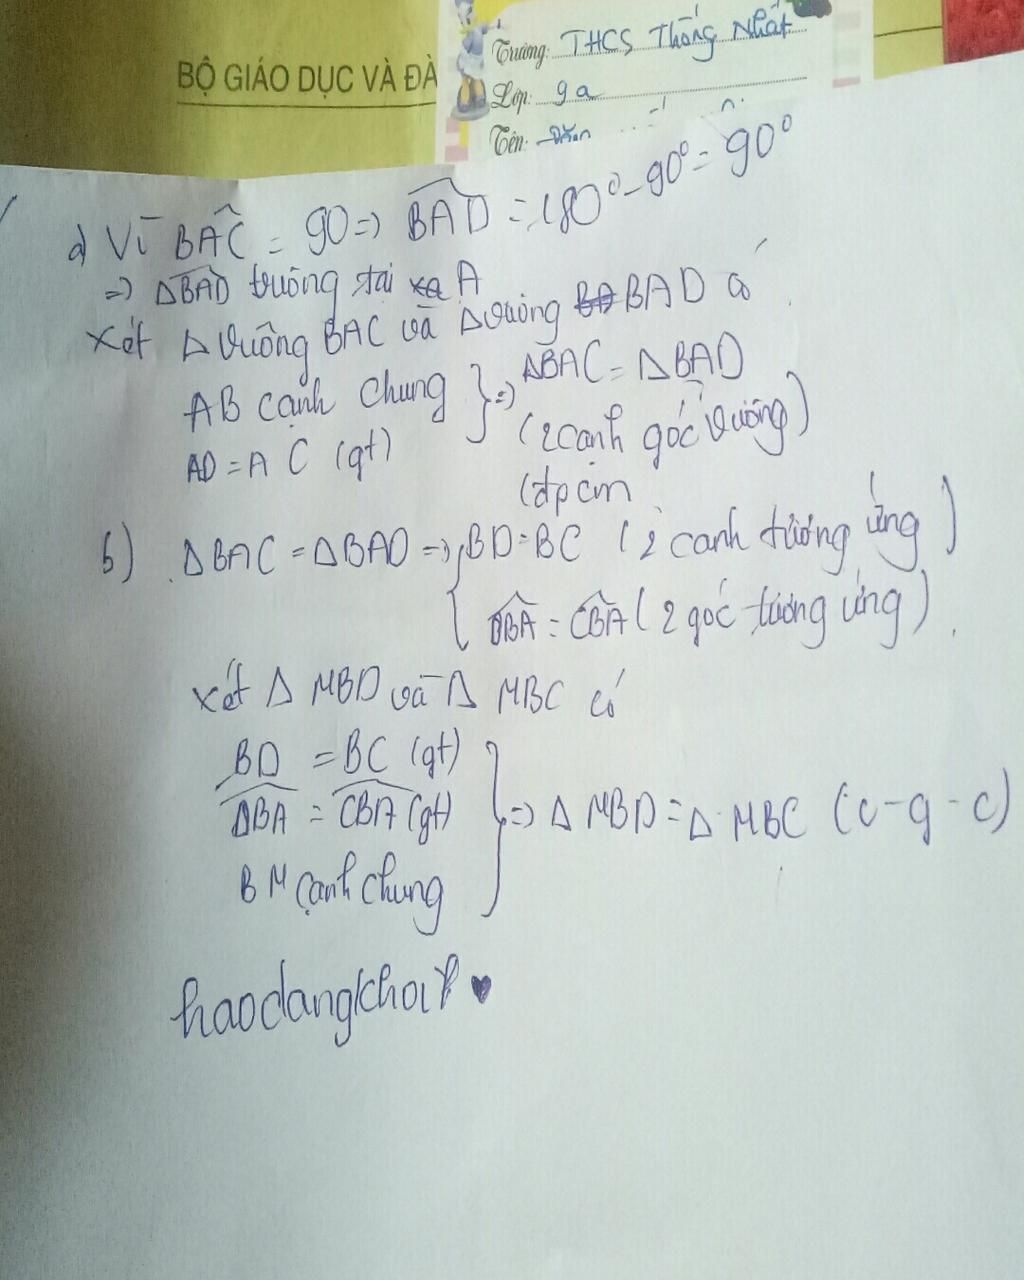 BỘ GIÁO DỤC VÀ ĐÀ
Trường: THCS Thống Nhất
Lớp: 9a
Tên:
a) Vì BAC = 90 => BAD = 180° - 90° = 90°
=> ΔBAD vuông tại A
Xét Δ vuông BAC và Δ vuông BAD có
AB cạnh chung } => ΔBAC = ΔBAD
AD = AC (gt) (2 cạnh góc vuông)
(đpcm
b) ΔBAC = ΔBAD => { BD = BC (2 cạnh tương ứng)
DBA = CBA (2 góc tương ứng).
Xét Δ MBD và Δ MBC có
BD = BC (gt)
DBA = CBA (gt) } => Δ MBD = Δ MBC (c-g-c)
BM cạnh chung